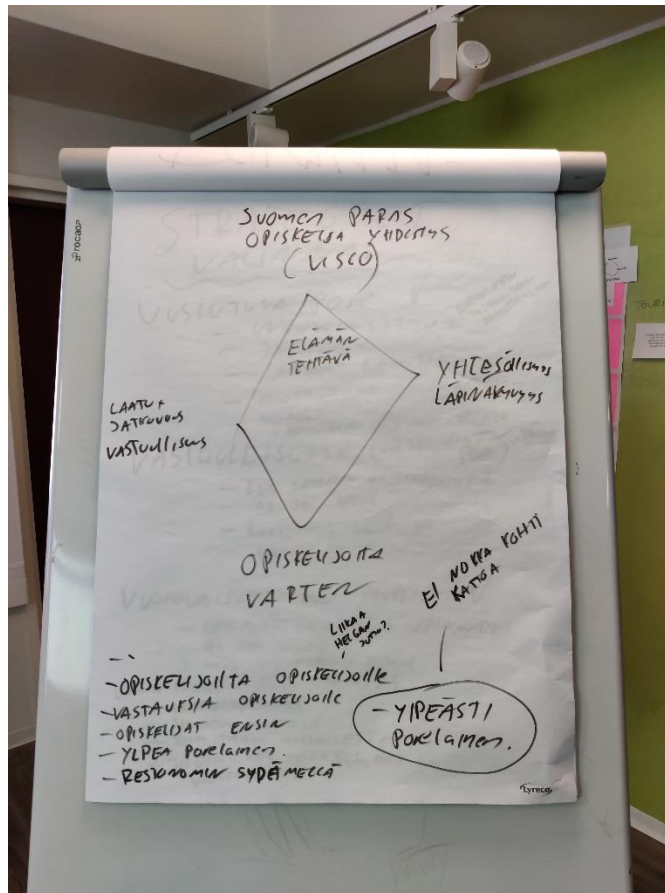 SUOMEN PARAS
OPISKELIJA YHDISTYS
(VISIO)
ELÄMÄN
TEHTÄVÄ
YHTESÖLLISYYS
LÄPINÄKYVYYS
LAATU +
JATKUVUUS
VASTUULLISUUS
OPISKELIJOITA
VARTEN
EI NOKKA KOHTI
KATTOA
LIIKAA
HELGAN
JUTTU?
- OPISKELIJOILTA OPISKELIJOILLE
- VASTAUKSIA OPISKELIJOILLE
- OPISKELIJAT ENSIN
- YLPEA Porelainen.
- RESTONOMIN SYDÄMELLÄ
- YLPEÄSTI
Porelainen.
Lyreco